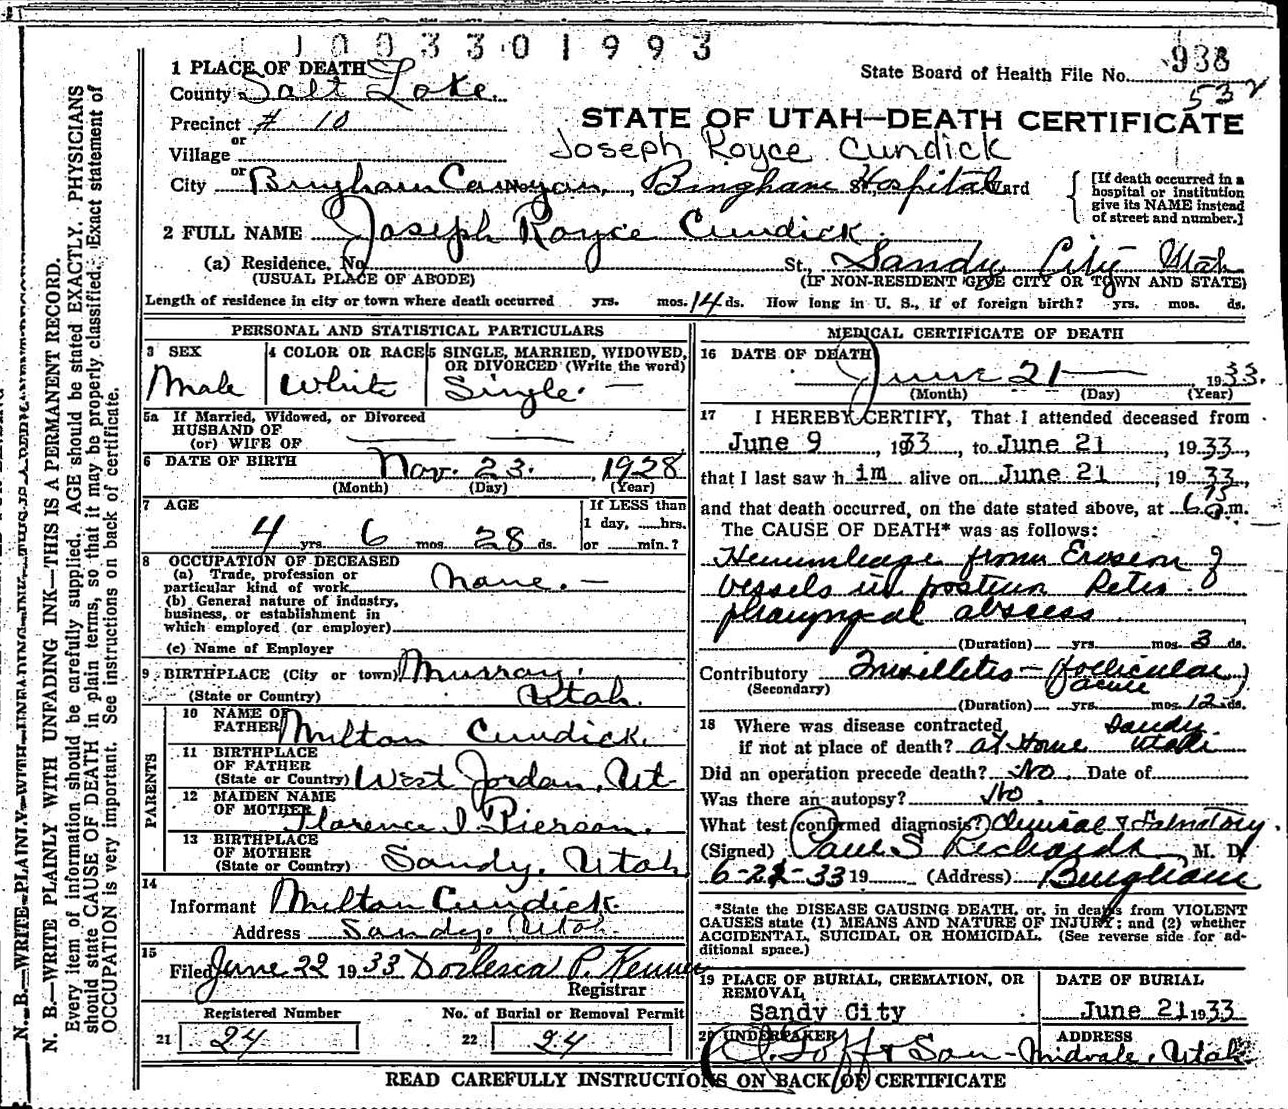 1003301993
938
532
State Board of Health File No.
1 PLACE OF DEATH
County Salt Lake.
Precinct # 10
or
Village
or
City Bingham Canyon, Bingham Hospital Ward
STATE OF UTAH—DEATH CERTIFICATE
Joseph Royce Cundick
[If death occurred in a
hospital or institution
give its NAME instead
of street and number.]
2 FULL NAME Joseph Royce Cundick
(a) Residence. No. St., Sandy City Utah
(USUAL PLACE OF ABODE) (IF NON-RESIDENT GIVE CITY OR TOWN AND STATE)
Length of residence in city or town where death occurred yrs. mos. 14 ds. How long in U. S., if of foreign birth? yrs. mos. ds.
PERSONAL AND STATISTICAL PARTICULARS
3 SEX
Male
4 COLOR OR RACE
White
5 SINGLE, MARRIED, WIDOWED,
OR DIVORCED (Write the word)
Single. —
5a If Married, Widowed, or Divorced
HUSBAND OF
(or) WIFE OF
6 DATE OF BIRTH Nov. 23. , 1928
(Month) (Day) (Year)
7 AGE
4 yrs. 6 mos. 28 ds.
If LESS than
1 day, ......hrs.
or ........min.?
8 OCCUPATION OF DECEASED
(a) Trade, profession or
particular kind of work none. —
(b) General nature of industry,
business, or establishment in
which employed (or employer)
(c) Name of Employer
9 BIRTHPLACE (City or town) Murray.
(State or Country) Utah.
PARENTS
10 NAME OF
FATHER Milton Cundick.
11 BIRTHPLACE
OF FATHER
(State or Country) West Jordan, Ut
12 MAIDEN NAME
OF MOTHER Florence I Pierson.
13 BIRTHPLACE
OF MOTHER
(State or Country) Sandy, Utah
14
Informant Milton Cundick.
Address Sandy. Utah
15
Filed June 22 1933 P. Kenner
Registrar
Registered Number
21 24
No. of Burial or Removal Permit
22 24
MEDICAL CERTIFICATE OF DEATH
16 DATE OF DEATH
June 21 — , 1933.
(Month) (Day) (Year)
17 I HEREBY CERTIFY, That I attended deceased from
June 9 , 1933 , to June 21 , 1933 ,
that I last saw h im alive on June 21 , 1933 ,
and that death occurred, on the date stated above, at 6 15 a m.
The CAUSE OF DEATH* was as follows:
Hemorrhage from Erosion of
vessels in posterior Retro
pharyngeal abscess
(Duration) yrs. mos. 3 ds.
Contributory Tonsilletis - (follicular)
(Secondary) acute
(Duration) yrs. mos. 12 ds.
18 Where was disease contracted
if not at place of death? at Home Sandy Utah
Did an operation precede death? No. Date of
Was there an autopsy? No.
What test confirmed diagnosis? Clinical & Laboratory
(Signed) Paul S Richards, M. D.
6-22-33 19 (Address) Bingham
*State the DISEASE CAUSING DEATH, or, in deaths from VIOLENT
CAUSES state (1) MEANS AND NATURE OF INJURY; and (2) whether
ACCIDENTAL, SUICIDAL OR HOMICIDAL. (See reverse side for ad-
ditional space.)
19 PLACE OF BURIAL, CREMATION, OR
REMOVAL
Sandy City
DATE OF BURIAL
June 21 1933
20 UNDERTAKER
Goff & Son
ADDRESS
Midvale, Utah
READ CAREFULLY INSTRUCTIONS ON BACK OF CERTIFICATE
N. B.—WRITE PLAINLY WITH UNFADING INK—THIS IS A PERMANENT RECORD.
Every item of information should be carefully supplied. AGE should be stated EXACTLY. PHYSICIANS
should state CAUSE OF DEATH in plain terms, so that it may be properly classified. Exact statement of
OCCUPATION is very important. See instructions on back of certificate.